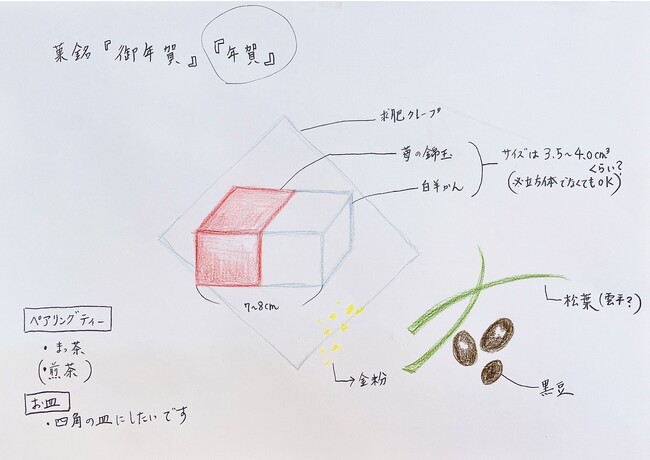 菓銘『御年賀』『年賀』
求肥クレープ
苺の錦玉
白羊かん
サイズは3.5~4.0cm³
くらい?
(※立方体でなくてもOK)
7~8cm
松葉(雲平?)
黒豆
→金粉
ペアリングティー
・まっ茶
(・煎茶)
お皿
・四角の皿にしたいです